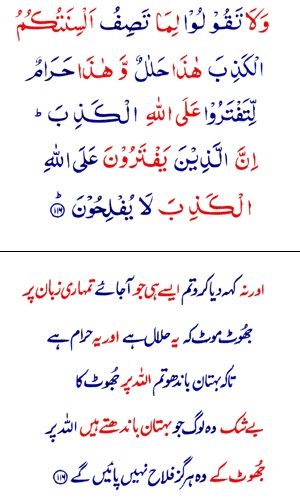 وَلَا تَقُوْلُوْا لِمَا تَصِفُ اَلْسِنَتُكُمُ
الْكَذِبَ هٰذَا حَلٰلٌ وَّ هٰذَا حَرَامٌ
لِّتَفْتَرُوْا عَلَى اللّٰهِ الْكَذِبَ ؕ
اِنَّ الَّذِيْنَ يَفْتَرُوْنَ عَلَى اللّٰهِ
الْكَذِبَ لَا يُفْلِحُوْنَ ؕ ﴿۱۱۶﴾
اور نہ کہہ دیا کرو تم ایسے ہی جو آجائے تمہاری زبان پر
جھُوٹ موٹ کہ یہ حلال ہے اور یہ حرام ہے
تاکہ بہتان باندھو تم اللہ پر جھُوٹ کا
بے شک وہ لوگ جو بہتان باندھتے ہیں اللہ پر
جھُوٹ کے وہ ہرگز فلاح نہیں پائیں گے ﴿۱۱۶﴾